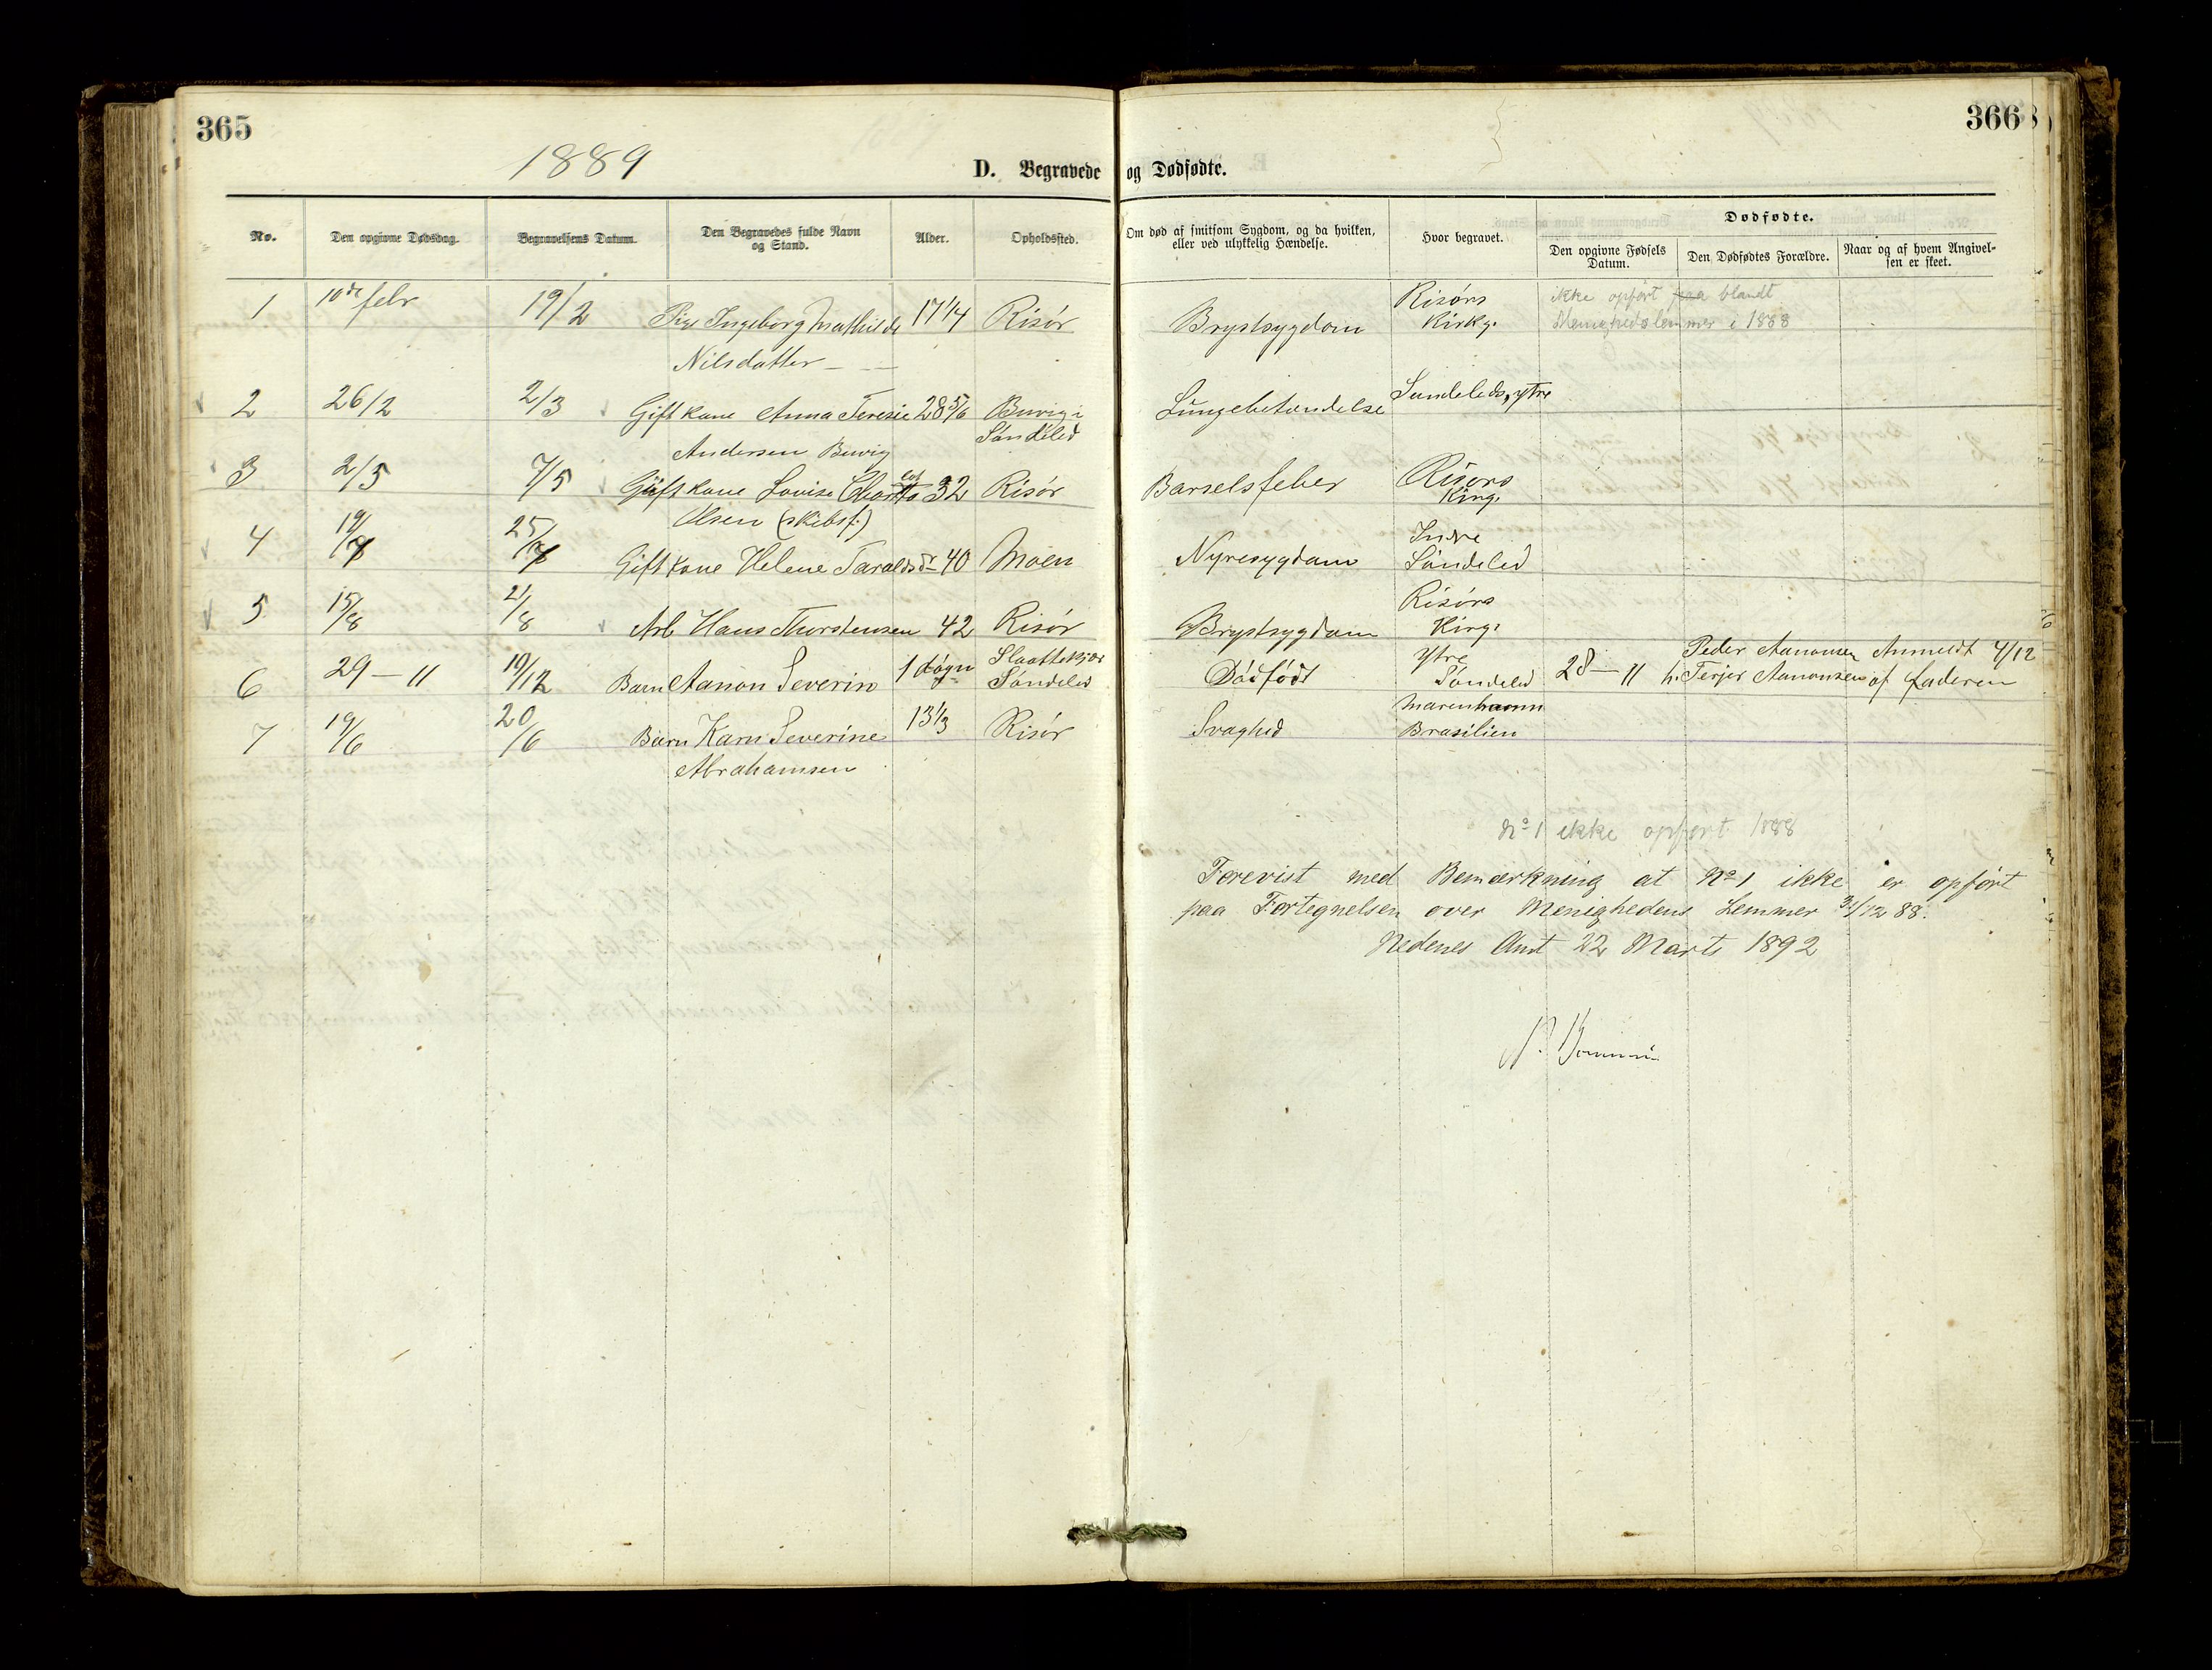 365
1889
D. Begravede
No.
Den opgivne Dødsdag.
Begravelsens Datum.
Den Begravedes fulde Navn
og Stand.
Alder.
Opholdssted.
1 10de febr 19/2 Pige Ingeborg Mathilde 17 1/4 Risör
Nilsdatter
2 26/2 2/3 Gift kone Anna Teresie 28 5/6 Buvig i
Söndeled
Andersen Buvig
3 2/5 7/5 Gift kone Lovise 32 Risör
Olsen (skibsf.)
4 19/7 25/7 Gift kone Helene Taraldsdr 40 Moen
5 15/8 21/8 Arb Hans Thorstensen 42 Risör
6 29-11 10/12 Barn Aanon Severin 1 dögn Slaattekjær
Söndeled
7 19/6 20/6 Barn Karn Severine 13 1/3 Risör
Abrahamsen
366
og Dødfødte.
Om død af smitsom Sygdom, og da hvilken,
eller ved ulykkelig Hændelse.
Hvor begravet.
Dødfødte.
Den opgivne Fødsels
Datum.
Den Dødfødtes Forældre.
Naar og af hvem Angivel-
sen er skeet.
Brystsygdom Risörs
Kirkg. ikke opfört paa blandt
Menighedslemmer i 1888
Lungebetændelse Sundeleds, ytre
Barselsfeber Risörs
Kirg.
Nyresygdom Indre
Söndeled
Brystsygdom Risörs
Kirg.
Dödfödt Ytre
Söndeled 28-11 Peder Aanonsen Anmeldt 4/12
h. Terjer Aanonsen af faderen
Svaghed Marenhamn
Brasilien
No 1 ikke opfört 1888
Forevist med Bemærkning at No 1 ikke er opfört
paa Fortegnelsen over Menighedens Lemmer 31/12 88.
Nedenes Amt 22 Marts 1892